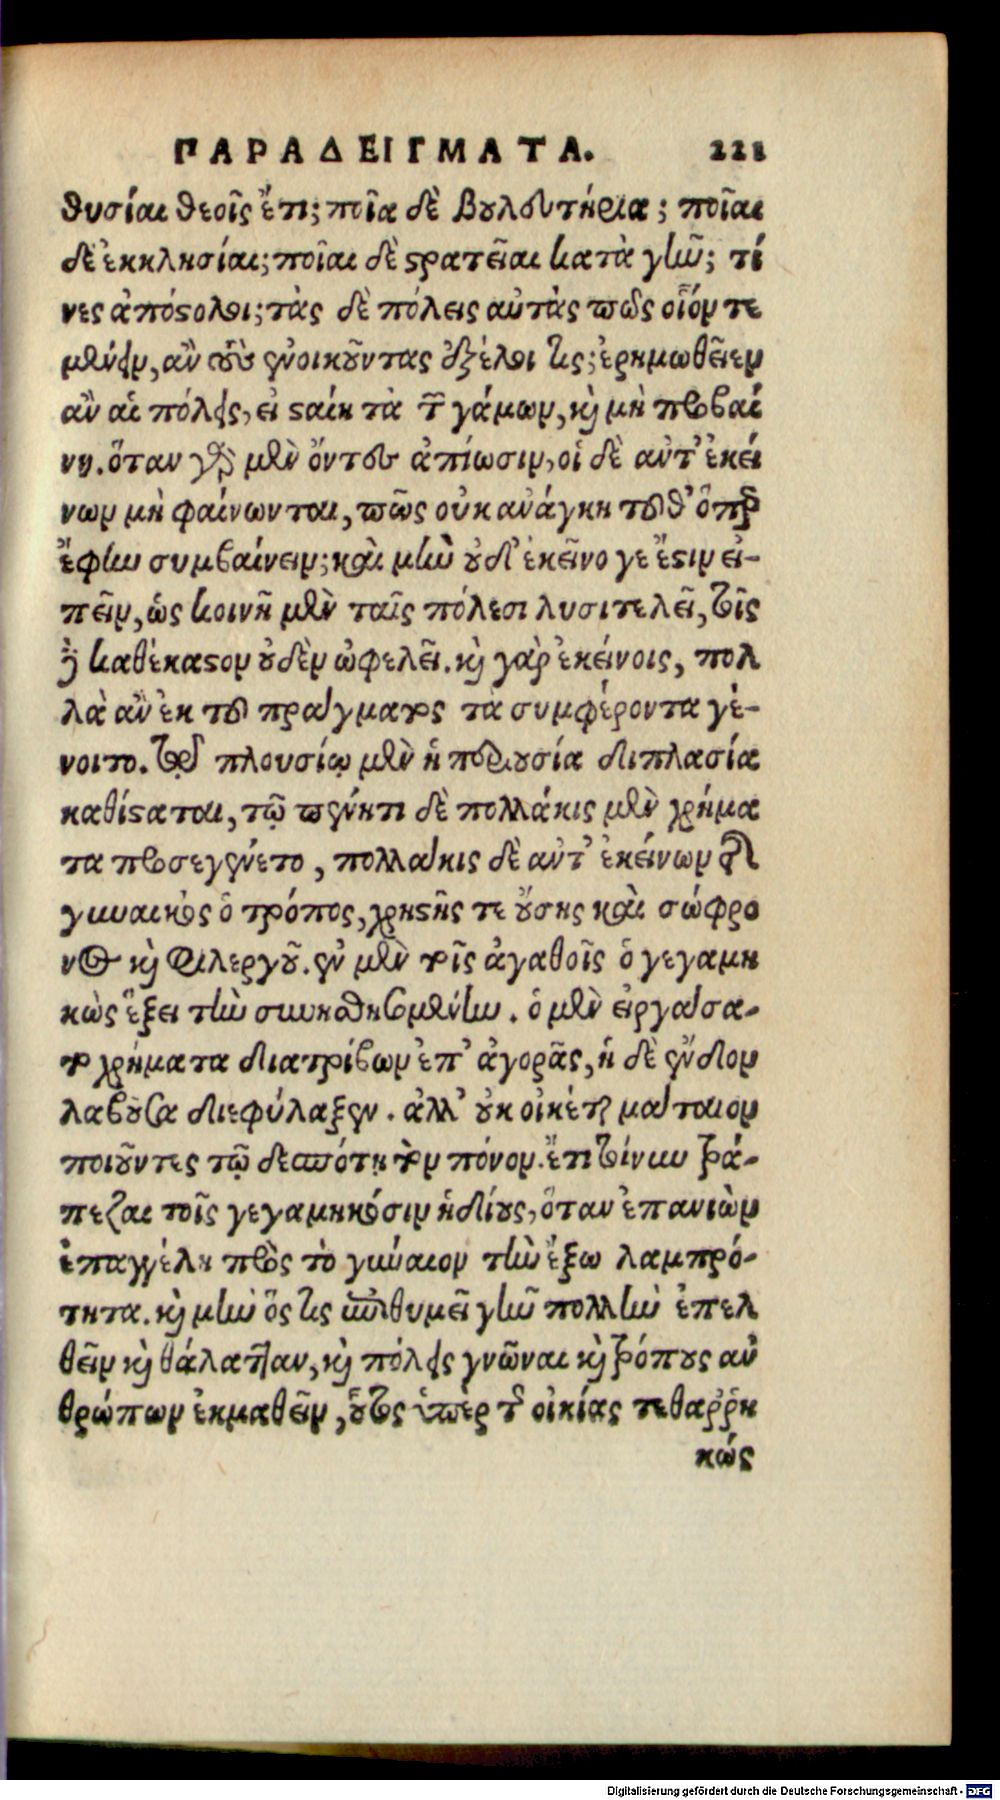 ΠΑΡΑΔΕΙΓΜΑΤΑ. 221
θυσίαι θεοῖς ἔτι; ποῖα δὲ βουλευτήρια; ποῖαι
δὲ ἐκκλησίαι; ποῖαι δὲ στρατεῖαι κατὰ γῆν; τί
νες ἀπόστολοι; τὰς δὲ πόλεις αὐτὰς πῶς οἷόν τε
μένειν, ἂν τοὺς ἐνοικοῦντας ἐξέλοι τις; ἐρημωθεῖεν
ἂν αἱ πόλεις, εἰ σταίη τὰ τῶν γάμων, καὶ μὴ προβαί
νῃ. ὅταν γὰρ μὲν ὄντες ἀπίωσιν, οἱ δὲ ἀντ' ἐκεί
νων μὴ φαίνωνται, πῶς οὐκ ἀνάγκη τοῦθ' ὅπερ
ἔφην συμβαίνειν; καὶ μὴν οὐδ' ἐκεῖνο γε ἔστιν εἰ-
πεῖν, ὡς κοινῇ μὲν ταῖς πόλεσι λυσιτελεῖ, τοῖς
δὲ καθέκαστον οὐδὲν ὠφελεῖ. καὶ γὰρ ἐκείνοις, πολ
λὰ ἂν ἐκ τοῦ πράγματος τὰ συμφέροντα γέ-
νοιτο. τῷ πλουσίῳ μὲν ἡ περιουσία διπλασία
καθίσταται, τῷ πένητι δὲ πολλάκις μὲν χρήμα
τα προσεγένετο, πολλάκις δὲ ἀντ' ἐκείνων τῆς
γυναικὸς ὁ τρόπος, χρηστῆς τε οὔσης καὶ σώφρο
νος καὶ φιλεργοῦ. ἐν μὲν τοῖς ἀγαθοῖς ὁ γεγαμη
κὼς ἕξει τὴν συνησθησομένην. ὁ μὲν εἰργάσα-
το χρήματα διατρίβων ἐπ' ἀγορᾶς, ἡ δὲ ἔνδον
λαβοῦσα διεφύλαξεν. ἀλλ' οὐκ οἰκέται μάταιον
ποιοῦντες τῷ δεσπότῃ τὸν πόνον. ἔτι τοίνυν τρά-
πεζαι τοῖς γεγαμηκόσιν ἡδίους, ὅταν ἐπανιὼν
ἐπαγγέλῃ πρὸς τὸ γύναιον τὴν ἔξω λαμπρό-
τητα. καὶ μὴν ὅς τις ἐπιθυμεῖ γῆν πολλὴν ἐπελ
θεῖν καὶ θάλατταν, καὶ πόλεις γνῶναι καὶ τρόπους ἀν
θρώπων ἐκμαθεῖν, οὗτος ὑπὲρ τῆς οἰκίας τεθαῤῥη
κώς
Digitalisierung gefördert durch die Deutsche Forschungsgemeinschaft - DFG